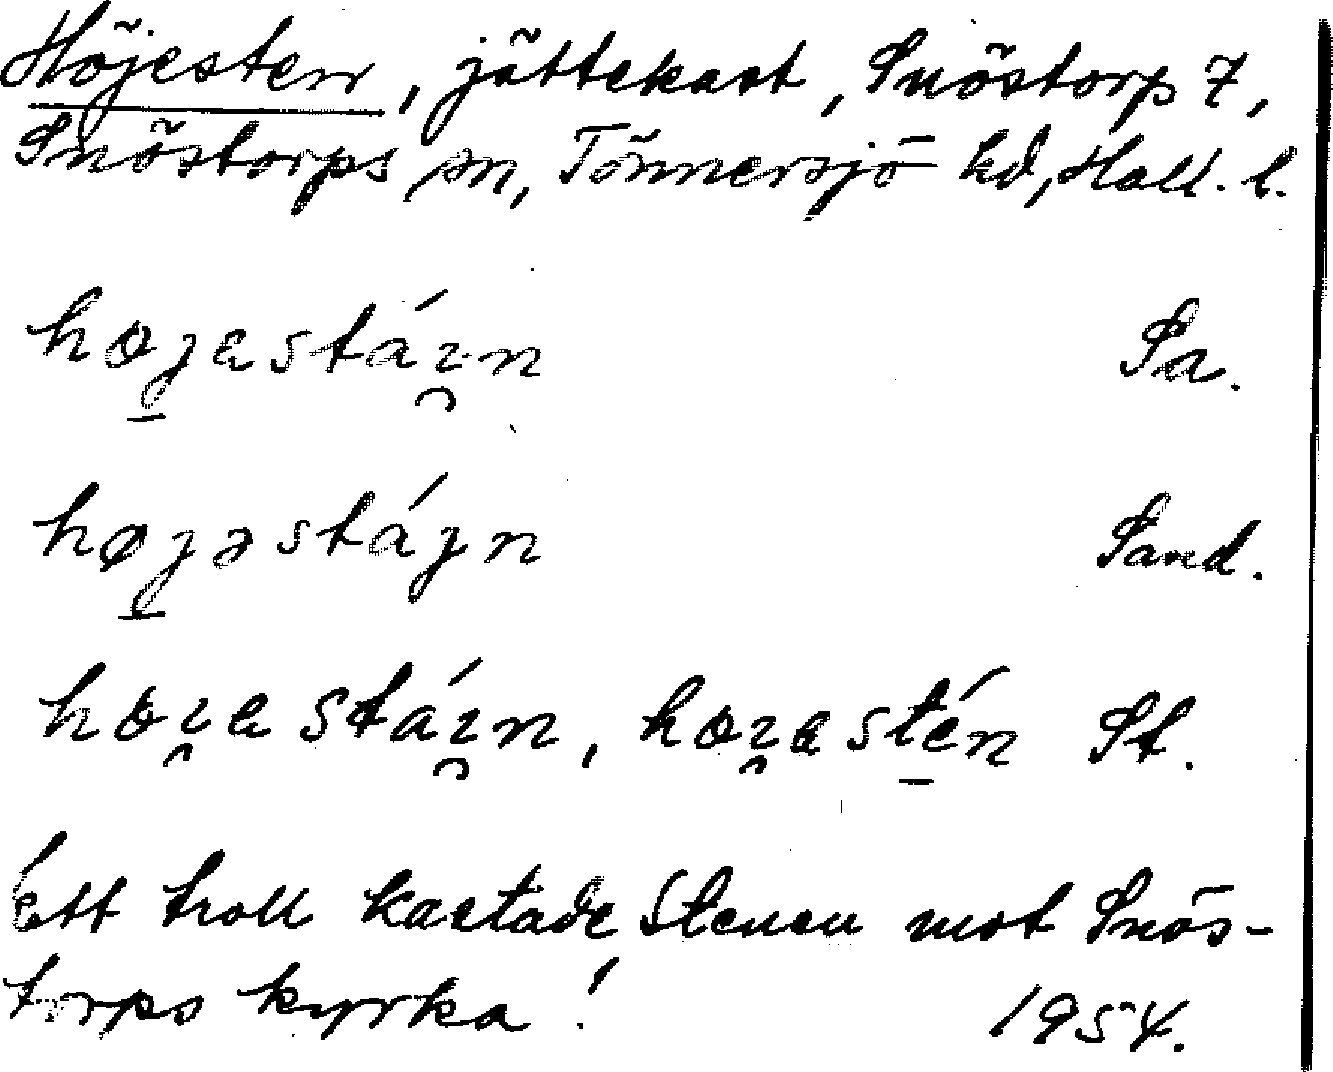 Höjesten, jättekast, Snöstorp 7,
Snöstorps sn, Tönnersjö hd, Hall. l.
højestáın Sa.
højəstájn Sand.
høıestáın, høıestén St.
Ett troll kastade stenen mot Snös-
torps kyrka! 1954.